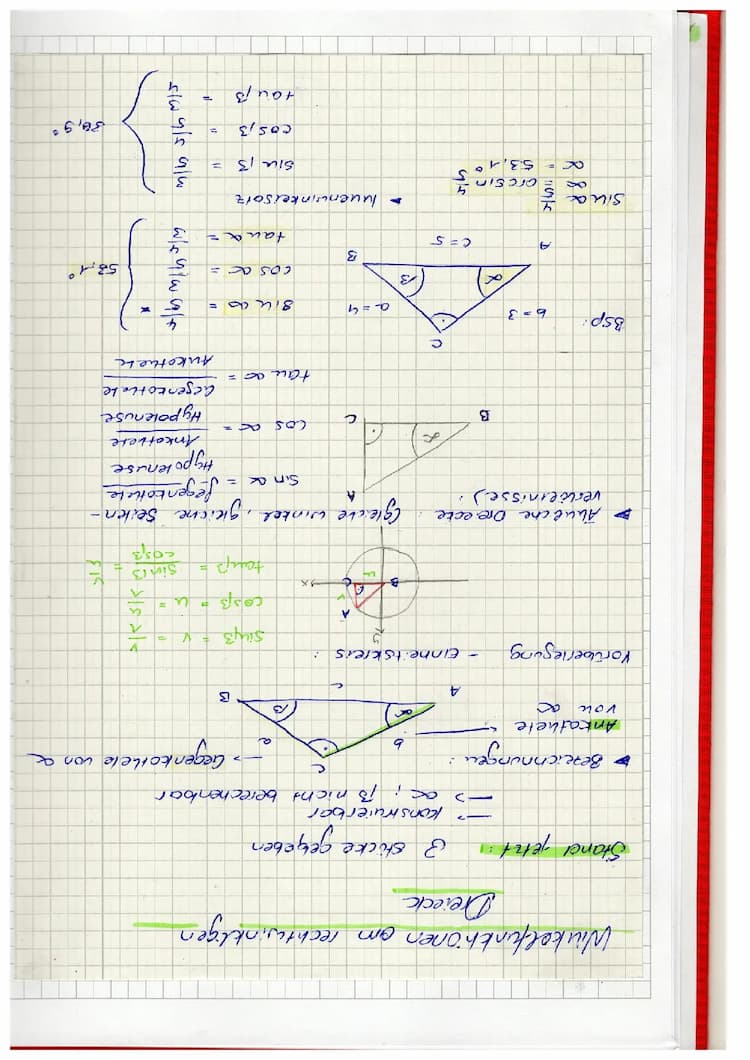 Winkelfunktionen am rechtwinkligen
Dreieck
Stand jetzt: 3 Stücke gegeben
→ konstruierbar
→ α ; β nicht berechenbar
▶ Bezeichnungen:
C
→ Gegenkathete von α
Ankathete
von α
b
a
α
β
A
c
B
Vorüberlegung - Einheitskreis :
y
x
A
v
B
u
C
β
sinβ = v = v/1
cosβ = u = u/1
tanβ = sinβ/cosβ = v/u
▶ Ähnliche Dreiecke : (gleiche Winkel, gleiche Seiten-
verhältnisse) :
A
α
B
C
sin α = Gegenkathete/Hypotenuse
cos α = Ankathete/Hypotenuse
tan α = Gegenkathete/Ankathete
BSP:
C
b = 3
a = 4
α
β
A
c = 5
B
sin α = 4/5 *
cos α = 3/5
tan α = 4/3
53,1°
sin α 4/5
α = arcsin 4/5
α = 53,1°
▶ Innenwinkelsatz
sin β = 3/5
cos β = 4/5
tan β = 3/4
36,9°